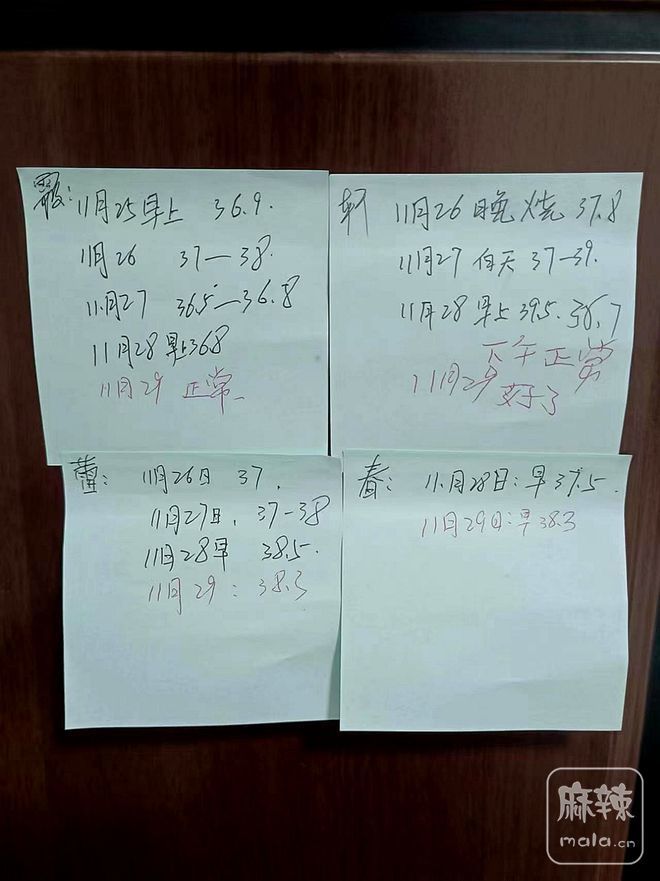 11月25早上 36.9.
11月26 37—38.
11月27 36.5—36.8
11月28早上36.8
11月29 正常
轩 11月26晚烧 37.8
11月27 白天 37—39.
11月28 早上39.5. 38.7
下午正常
11月29 好了
蕾: 11月26日 37.
11月27日. 37-38
11月28早 38.5.
11月29: 38.3
春: 11月28日:早37.5.
11月29日:早38.3
麻辣
mala.cn